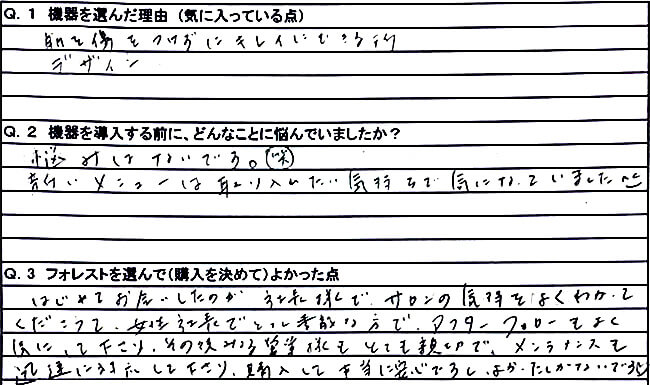 Q. 1 機器を選んだ理由（気に入っている点）
肌を傷をつけずにキレイにできる所
デザイン
Q. 2 機器を導入する前に、どんなことに悩んでいましたか？
悩みはないです。(笑)
新しいメニューは取り入れたい気持ちで気になっていました
Q. 3 フォレストを選んで（購入を決めて）よかった点
はじめてお会いしたのが社長様で、サロンの気持をよくわかって
くださって、女性社長でとても素敵な方で、アフターフォローもよく
気にして下さり、その後みる営業様もとても親切で、メンテナンスも
迅速に対応して下さり、購入して本当に安心ですし、よかったしかないです